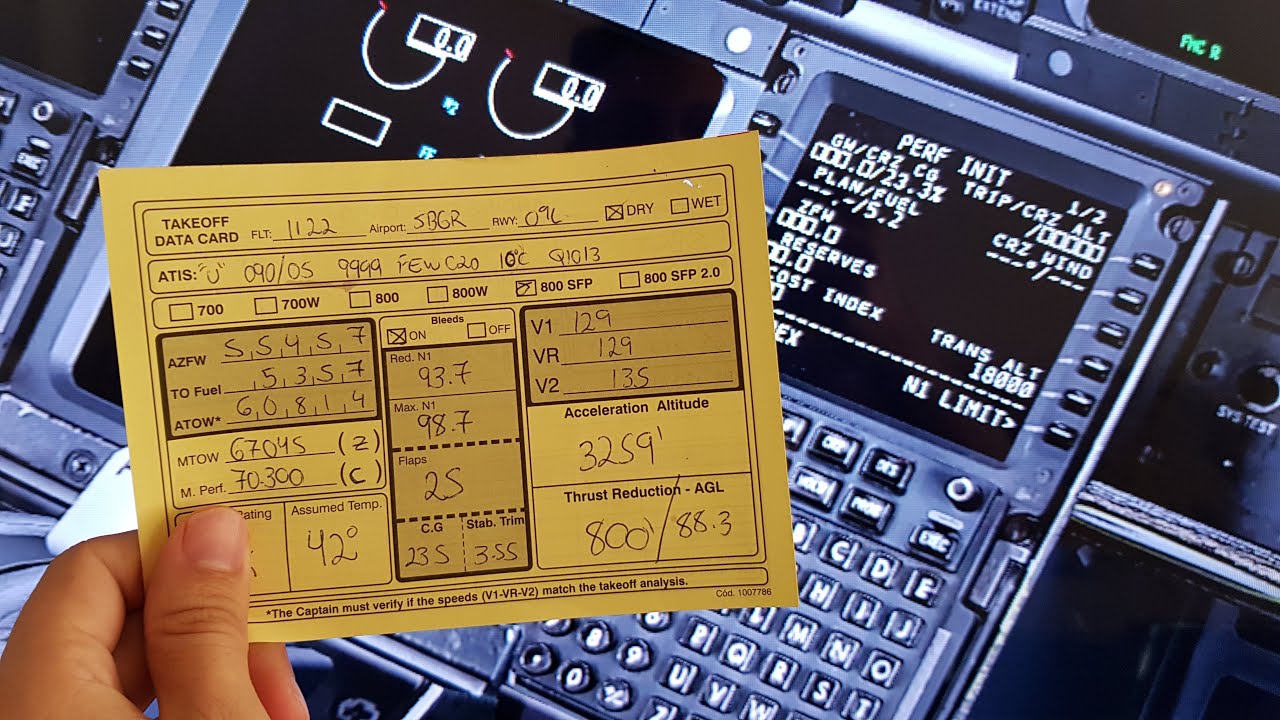 TAKEOFF DATA CARD FLT: 1122 Airport: SBGR RWY: 09L ☒ DRY ☐ WET
ATIS: "U" 090/05 9999 FEWC20 10°C Q1013
700 700W 800 800W 800 SFP 800 SFP 2.0
AZFW 5,5,4,5,7
TO Fuel ,5,3,5,7
ATOW* 6,0,8,1,4
MTOW 67045 (Z)
M. Perf. 70.300 (C)
Assumed Temp.
42°
Bleeds
ON OFF
Red. N1
93.7
Max. N1
98.7
Flaps
25
C.G Stab. Trim
23.5 3.55
V1 129
VR 129
V2 135
Acceleration Altitude
3259'
Thrust Reduction - AGL
800'/88.3
*The Captain must verify if the speeds (V1-VR-V2) match the takeoff analysis.
Cód. 1007786
0.0
0.0
N2
FF
FMC R
EXTEND
PERF INIT
1/2
GW/CRZ CG TRIP/CRZ ALT
000.0/23.3% /00000
PLAN/FUEL CRZ WIND
---.-/5.2 ---°/---
ZFW
000.0
RESERVES
COST INDEX
TRANS ALT
18000
N1 LIMIT>
SYS TEST
CRZ
DES
PROG
EXEC
EXEC
C D E
I J
L M N O
P Q R S
U V W X
8 9
0